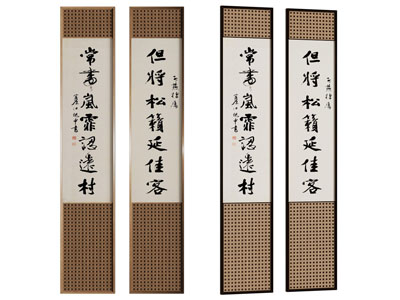 但将松籟延佳客
常帶嵐霏認遠村
但将松籟延佳客
常帶嵐霏認遠村